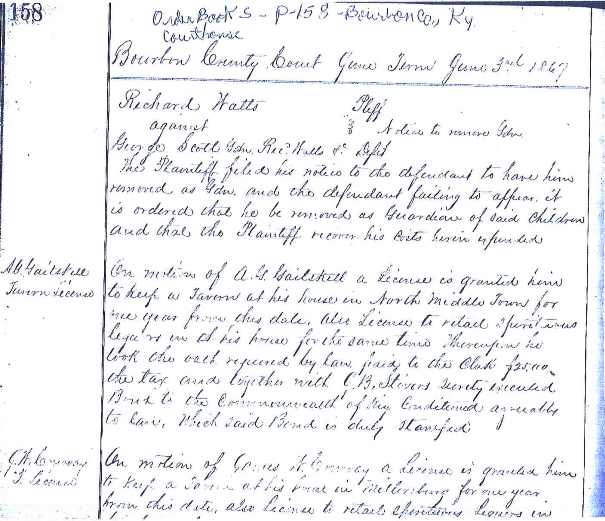 158
Order Book S - P-158 - Bourbon Co, Ky
Courthouse
Bourbon County Court June Term June 3rd 1867
Richard Watts Pltff
against Notice to remove Gdn
George Scott Gdn. Rec. Watts &c Deft
The Plaintiff filed his notice to the defendant to have him
removed as Gdn. and the defendant failing to appear it
is ordered that he be removed as Guardian of said Children
and that the Plaintiff recover his Costs herein expended
A.G. Gaitskill
Tavern License
On motion of A. G. Gaitskill a License is granted him
to keep a Tavern at his house in North Middle Town for
one year from this date, also License to retail Spiritous
Liquors in at his house for the same time Thereupon he
took the oath required by law, paid to the Clerk
the tax and together with C. B. Stivers Surety executed
Bond to the Commonwealth of Ky Conditioned agreeably
to law, Which said Bond is duly Stamped
T. License
On motion of James a License is granted him
to keep a Tavern at his house in Millersburg for one year
from this date, also License to retail Spiritous Liquors in